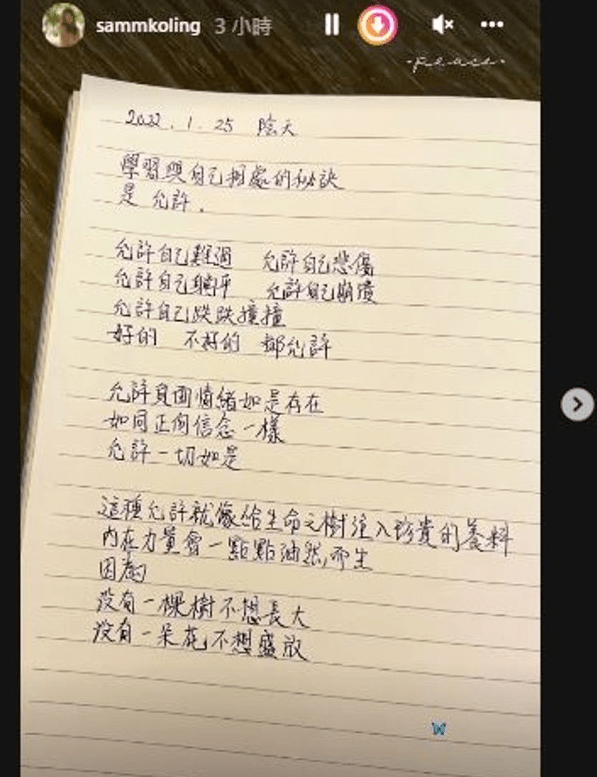 sammkoling 3 小時
·Peace·
2022.1.25 陰天
學習與自己相處的秘訣
是 允許.
允許自己難過 允許自己悲傷
允許自己躺平 允許自己崩潰
允許自己跌跌撞撞
好的 不好的 都允許
允許負面情緒如是存在
如同正向信念一樣
允許一切如是
這種允許就像給生命之樹注入珍貴的養料
內在力量會一點點油然而生
因為
沒有一棵樹不想長大
沒有一朵花不想盛放